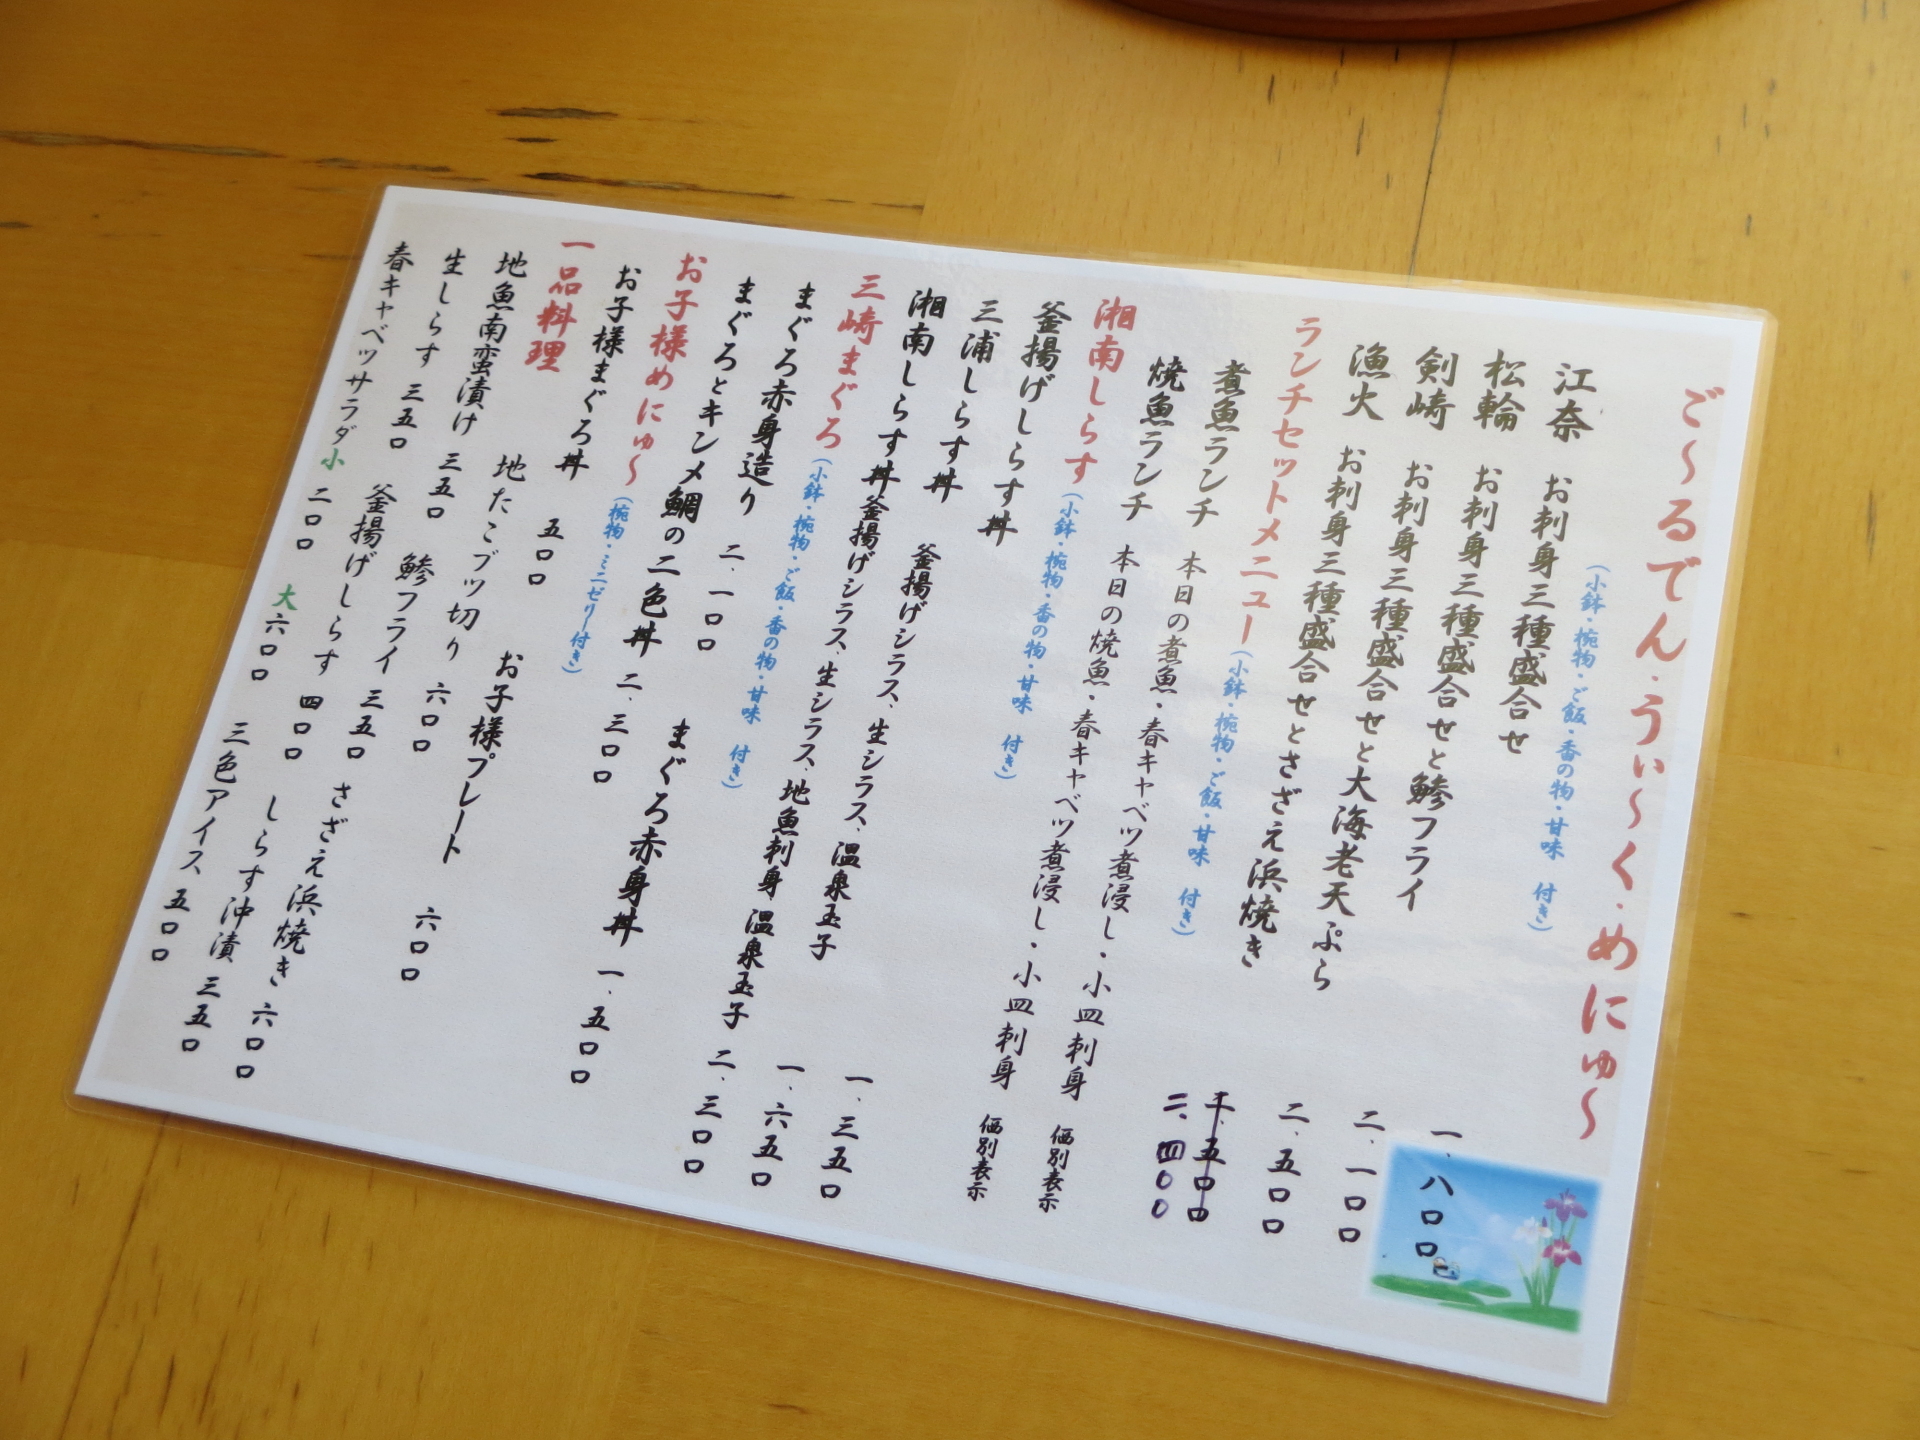 ご～るでん・うぃ～く・めにゅ～
(小鉢・椀物・ご飯・香の物・甘味 付き)
江奈 お刺身三種盛合せ 一、八〇〇
松輪 お刺身三種盛合せと鯵フライ 二、一〇〇
剣崎 お刺身三種盛合せと大海老天ぷら 二、五〇〇
漁火 お刺身三種盛合せとさざえ浜焼き 二、四〇〇
ランチセットメニュー(小鉢・椀物・ご飯・甘味 付き)
煮魚ランチ 本日の煮魚・春キャベツ煮浸し・小皿刺身 価別表示
焼魚ランチ 本日の焼魚・春キャベツ煮浸し・小皿刺身 価別表示
湘南しらす(小鉢・椀物・香の物・甘味 付き)
釜揚げしらす丼 釜揚げシラス、生シラス、温泉玉子 一、三五〇
三浦しらす丼 釜揚げシラス、生シラス、地魚刺身 温泉玉子 一、六五〇
湘南しらす丼 二、三〇〇
三崎まぐろ(小鉢・椀物・ご飯・香の物・甘味 付き)
まぐろ赤身造り 二、一〇〇 まぐろ赤身丼 一、五〇〇
まぐろとキンメ鯛の二色丼 二、三〇〇
お子様めにゅ～(椀物・ミニゼリー付き)
お子様まぐろ丼 五〇〇 お子様プレート 六〇〇
一品料理
地魚南蛮漬け 三五〇 地たこブツ切り 六〇〇
生しらす 三五〇 鯵フライ 三五〇 さざえ浜焼き 六〇〇
釜揚げしらす 四〇〇 しらす沖漬 三五〇
春キャベツサラダ 小 二〇〇 大 六〇〇 三色アイス 五〇〇